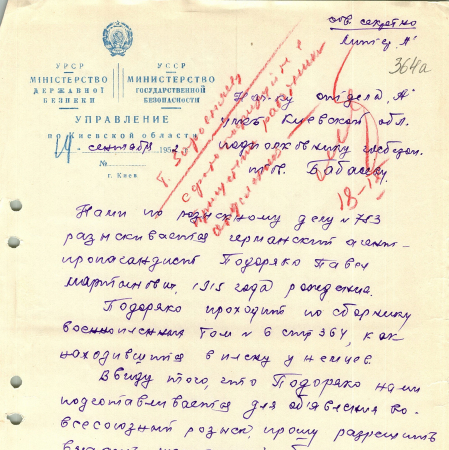 Сов. секретно
Литер "А"
364а
УРСР
МІНІСТЕРСТВО
ДЕРЖАВНОЇ
БЕЗПЕКИ
УССР
МИНИСТЕРСТВО
ГОСУДАРСТВЕННОЙ
БЕЗОПАСНОСТИ
УПРАВЛЕНИЕ
по Киевской области
19 сентября 1952
№
г. Киев
Нач-ку отдела "А"
УМГБ Киевской обл.
подполковнику госбезоп.
тов.
18-IX
Нами по розыскному делу № 783
разыскивается германский агент-
пропагандист Подоряко Павел
Мартынович, 1919 года рождения.
Подоряко проходит по сборнику
военнопленных том № 6 стр 364, как
находившийся в плену у немцев.
Ввиду того, что Подоряко нами
подготавливается для объявления во
всесоюзный розыск, прошу разрешить